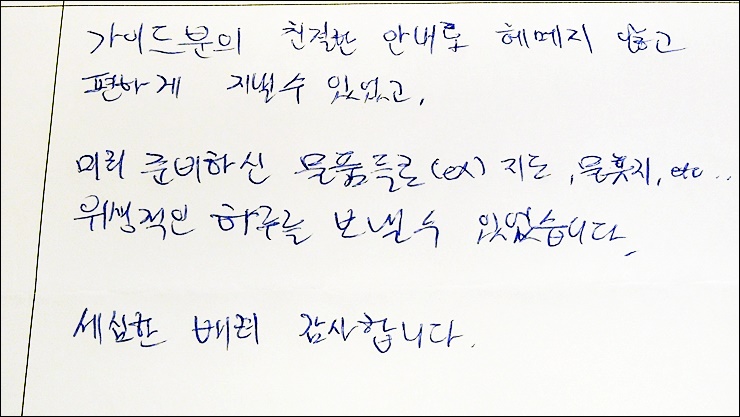 가이드분의 친절한 안내로 헤메지 않고
편하게 지낼수 있었고,
미리 준비하신 물품들로(ex) 지도, 물휴지, etc..
위생적인 하루를 보낼수 있었습니다.
세심한 배려 감사합니다.